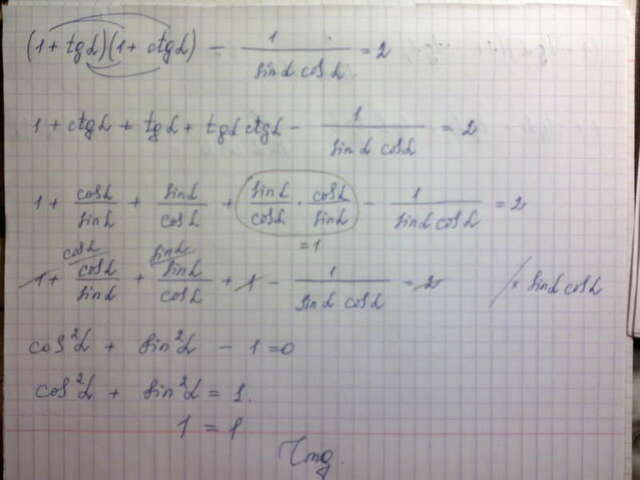 (1 + tgα)(1 + ctgα) - 1/(sinα cosα) = 2
1 + ctgα + tgα + tgα ctgα - 1/(sinα cosα) = 2
1 + cosα/sinα + sinα/cosα + sinα/cosα · cosα/sinα - 1/(sinα cosα) = 2
= 1
cosα sinα
1 + cosα/sinα + sinα/cosα + 1 - 1/(sinα cosα) = 2 / × sinα cosα
cos²α + sin²α - 1 = 0
cos²α + sin²α = 1.
1 = 1